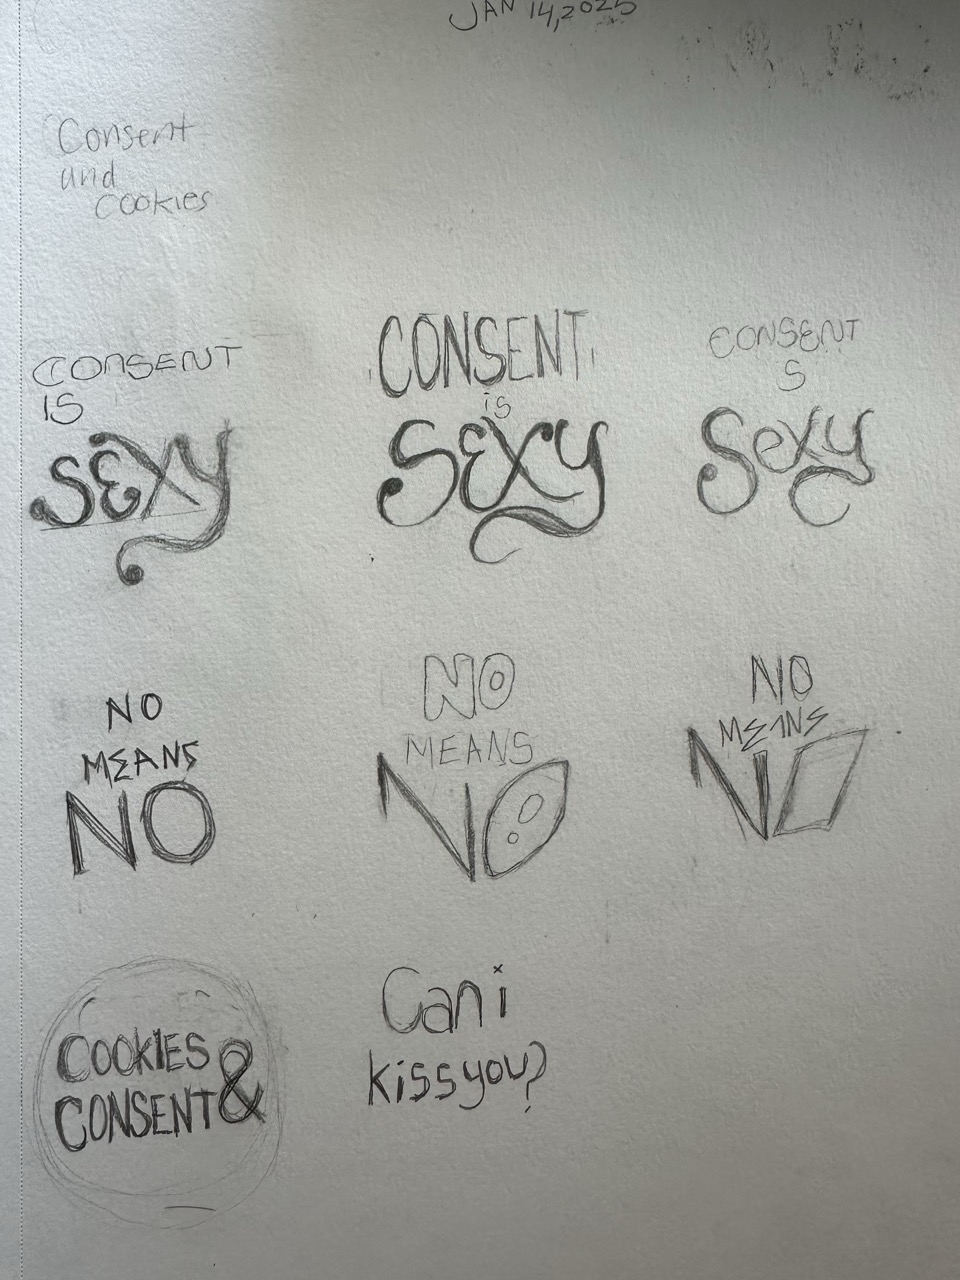 JAN 14, 2025
Consent
and
cookies
CONSENT
IS
SEXY
CONSENT
is
SEXY
CONSENT
S
Sexy
NO
MEANS
NO
NO
MEANS
NO
NO
MEANS
NO
COOKIES
&
CONSENT
Can i
kiss you?